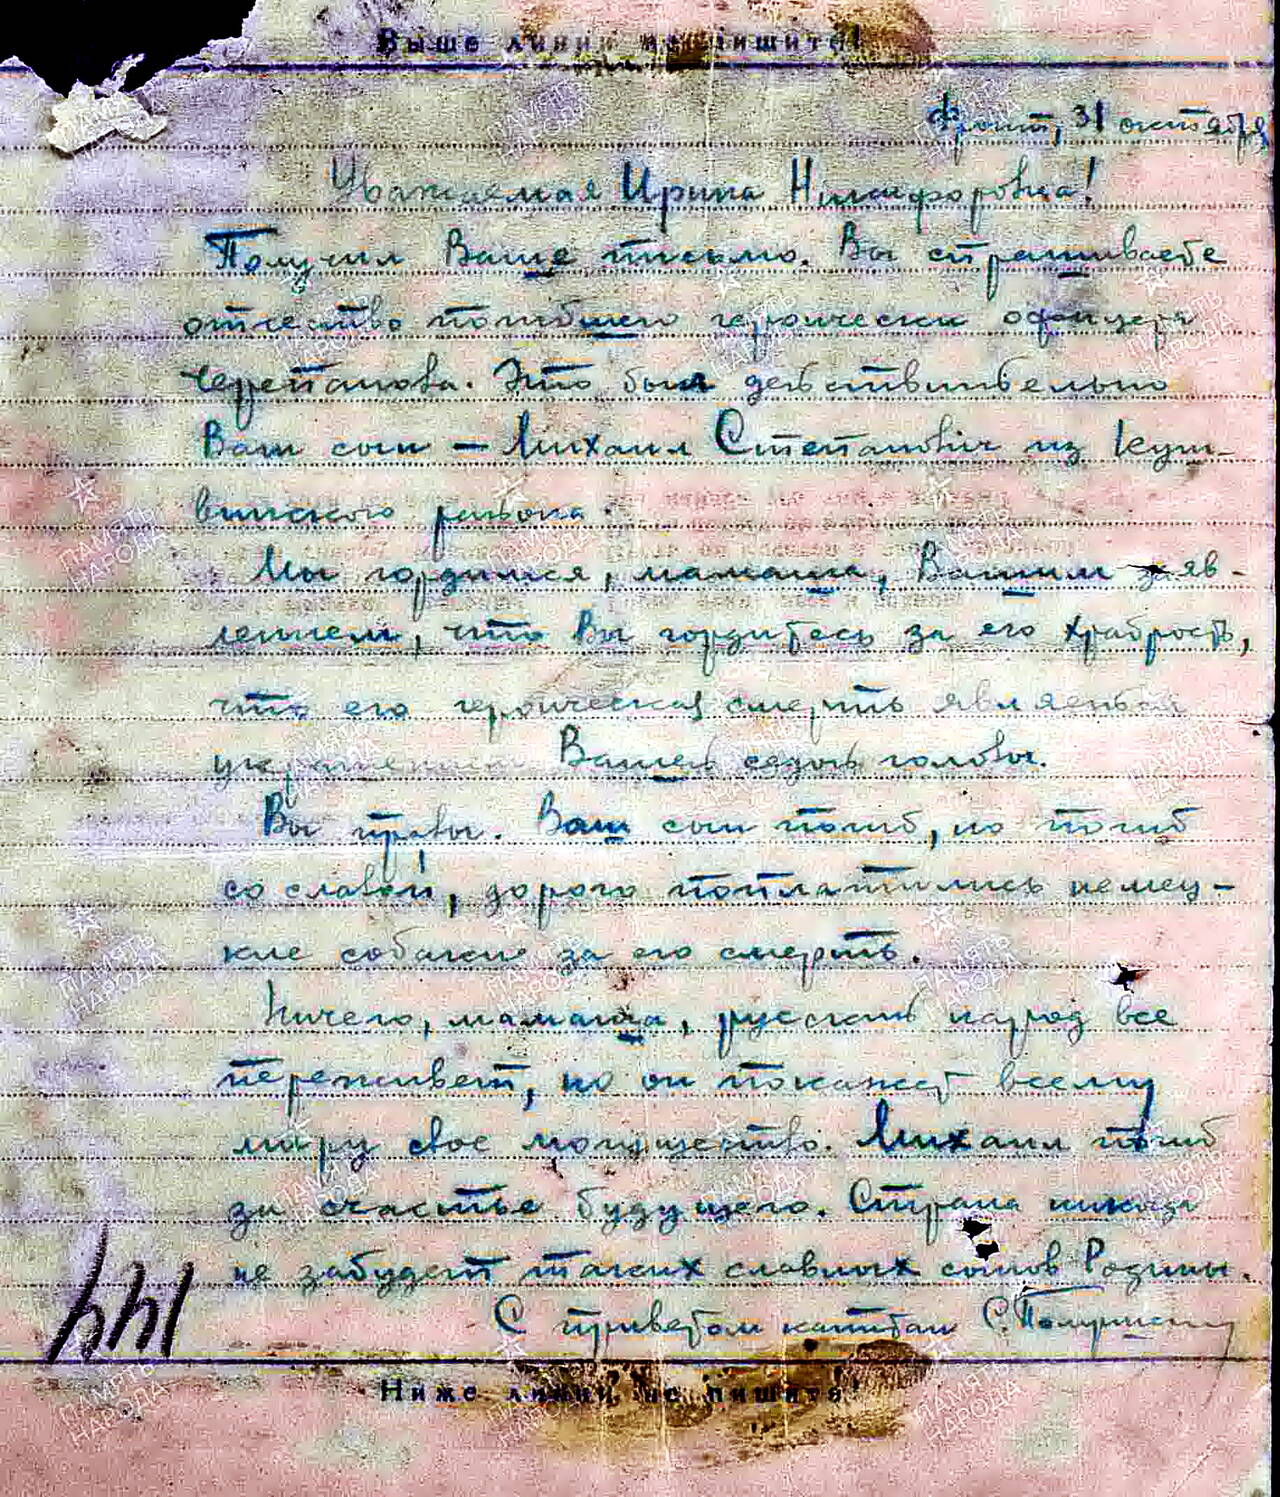 Выше линии не пишите!
Фронт, 31 октября
Уважаемая Ирина Никифоровна!
Получил Ваше письмо. Вы спрашиваете
отчество погибшего героически офицера
Черепанова. Это был действительно
Ваш сын – Михаил Степанович из Куш-
винского района.
Мы гордимся, мамаша, Вашим заяв-
лением, что Вы гордитесь за его храбрость,
что его героическая смерть является
украшением Вашей седой головы.
Вы правы. Ваш сын погиб, но погиб
со славой, дорого поплатились немец-
кие собаки за его смерть.
Ничего, мамаша, русский народ все
переживет, но он покажет всему
миру свое могущество. Михаил погиб
за счастье будущего. Страна никогда
не забудет таких славных сынов Родины.
С приветом капитан С.
144
Ниже линии не пишите!
ПАМЯТЬ НАРОДА